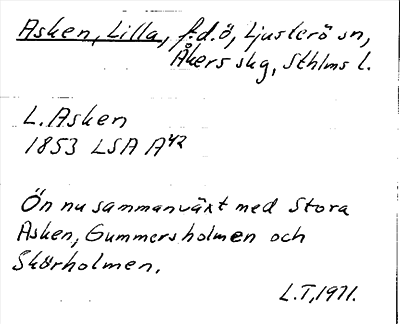 Asken, Lilla, f.d. ö, Ljusterö sn,
Åkers skg, Sthlms l.
L. Asken
1853 LSA A42
Ön nu sammanväxt med Stora
Asken, Gummersholmen och
Skörholmen.
L.T, 1971.